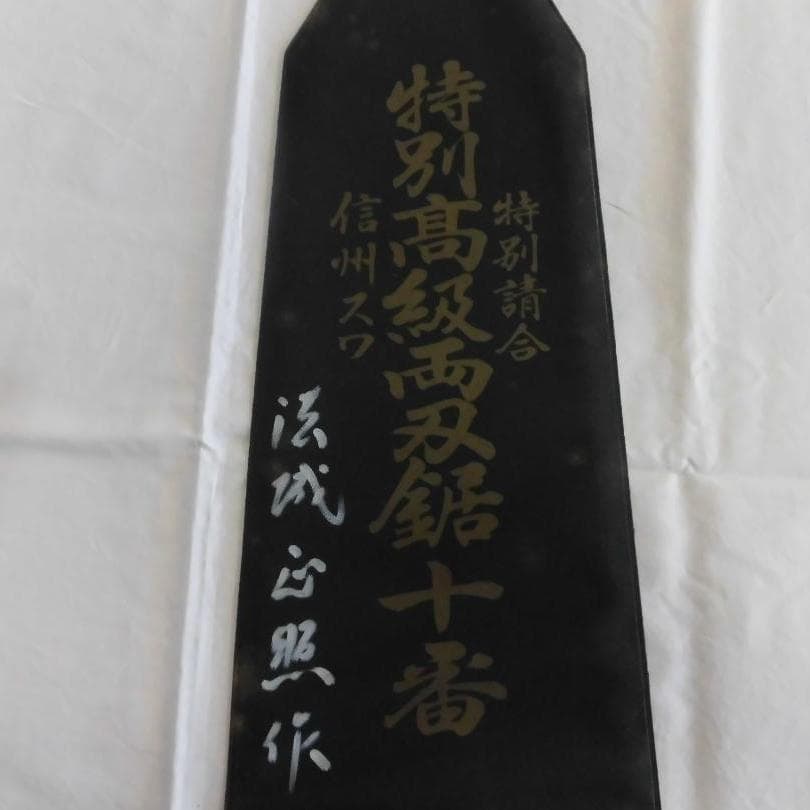 特別請合
特別高級両刃鋸十番
信州スワ
法城正照作